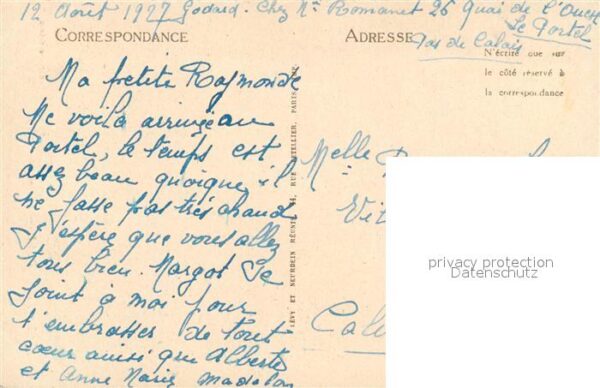 12 Août 1927 Godard. Chez Mr Romanet 26 Quai de l'Ouest
Le Portel
Pas de Calais
CORRESPONDANCE
ADRESSE
N'écrire que sur
le côté réservé à
la correspondance
Ma petite Raymonde
Me voilà arrivée au
Portel, le temps est
assez beau quoique il
ne fasse pas très chaud
J'espère que vous allez
tous bien. Margot se
joint à moi pour
t'embrasser de tout
cœur ainsi que Alberte
et Anne Marie
LÉVY ET NEURDEIN RÉUNIS, 44, RUE LETELLIER, PARIS
Melle
privacy protection
Datenschutz